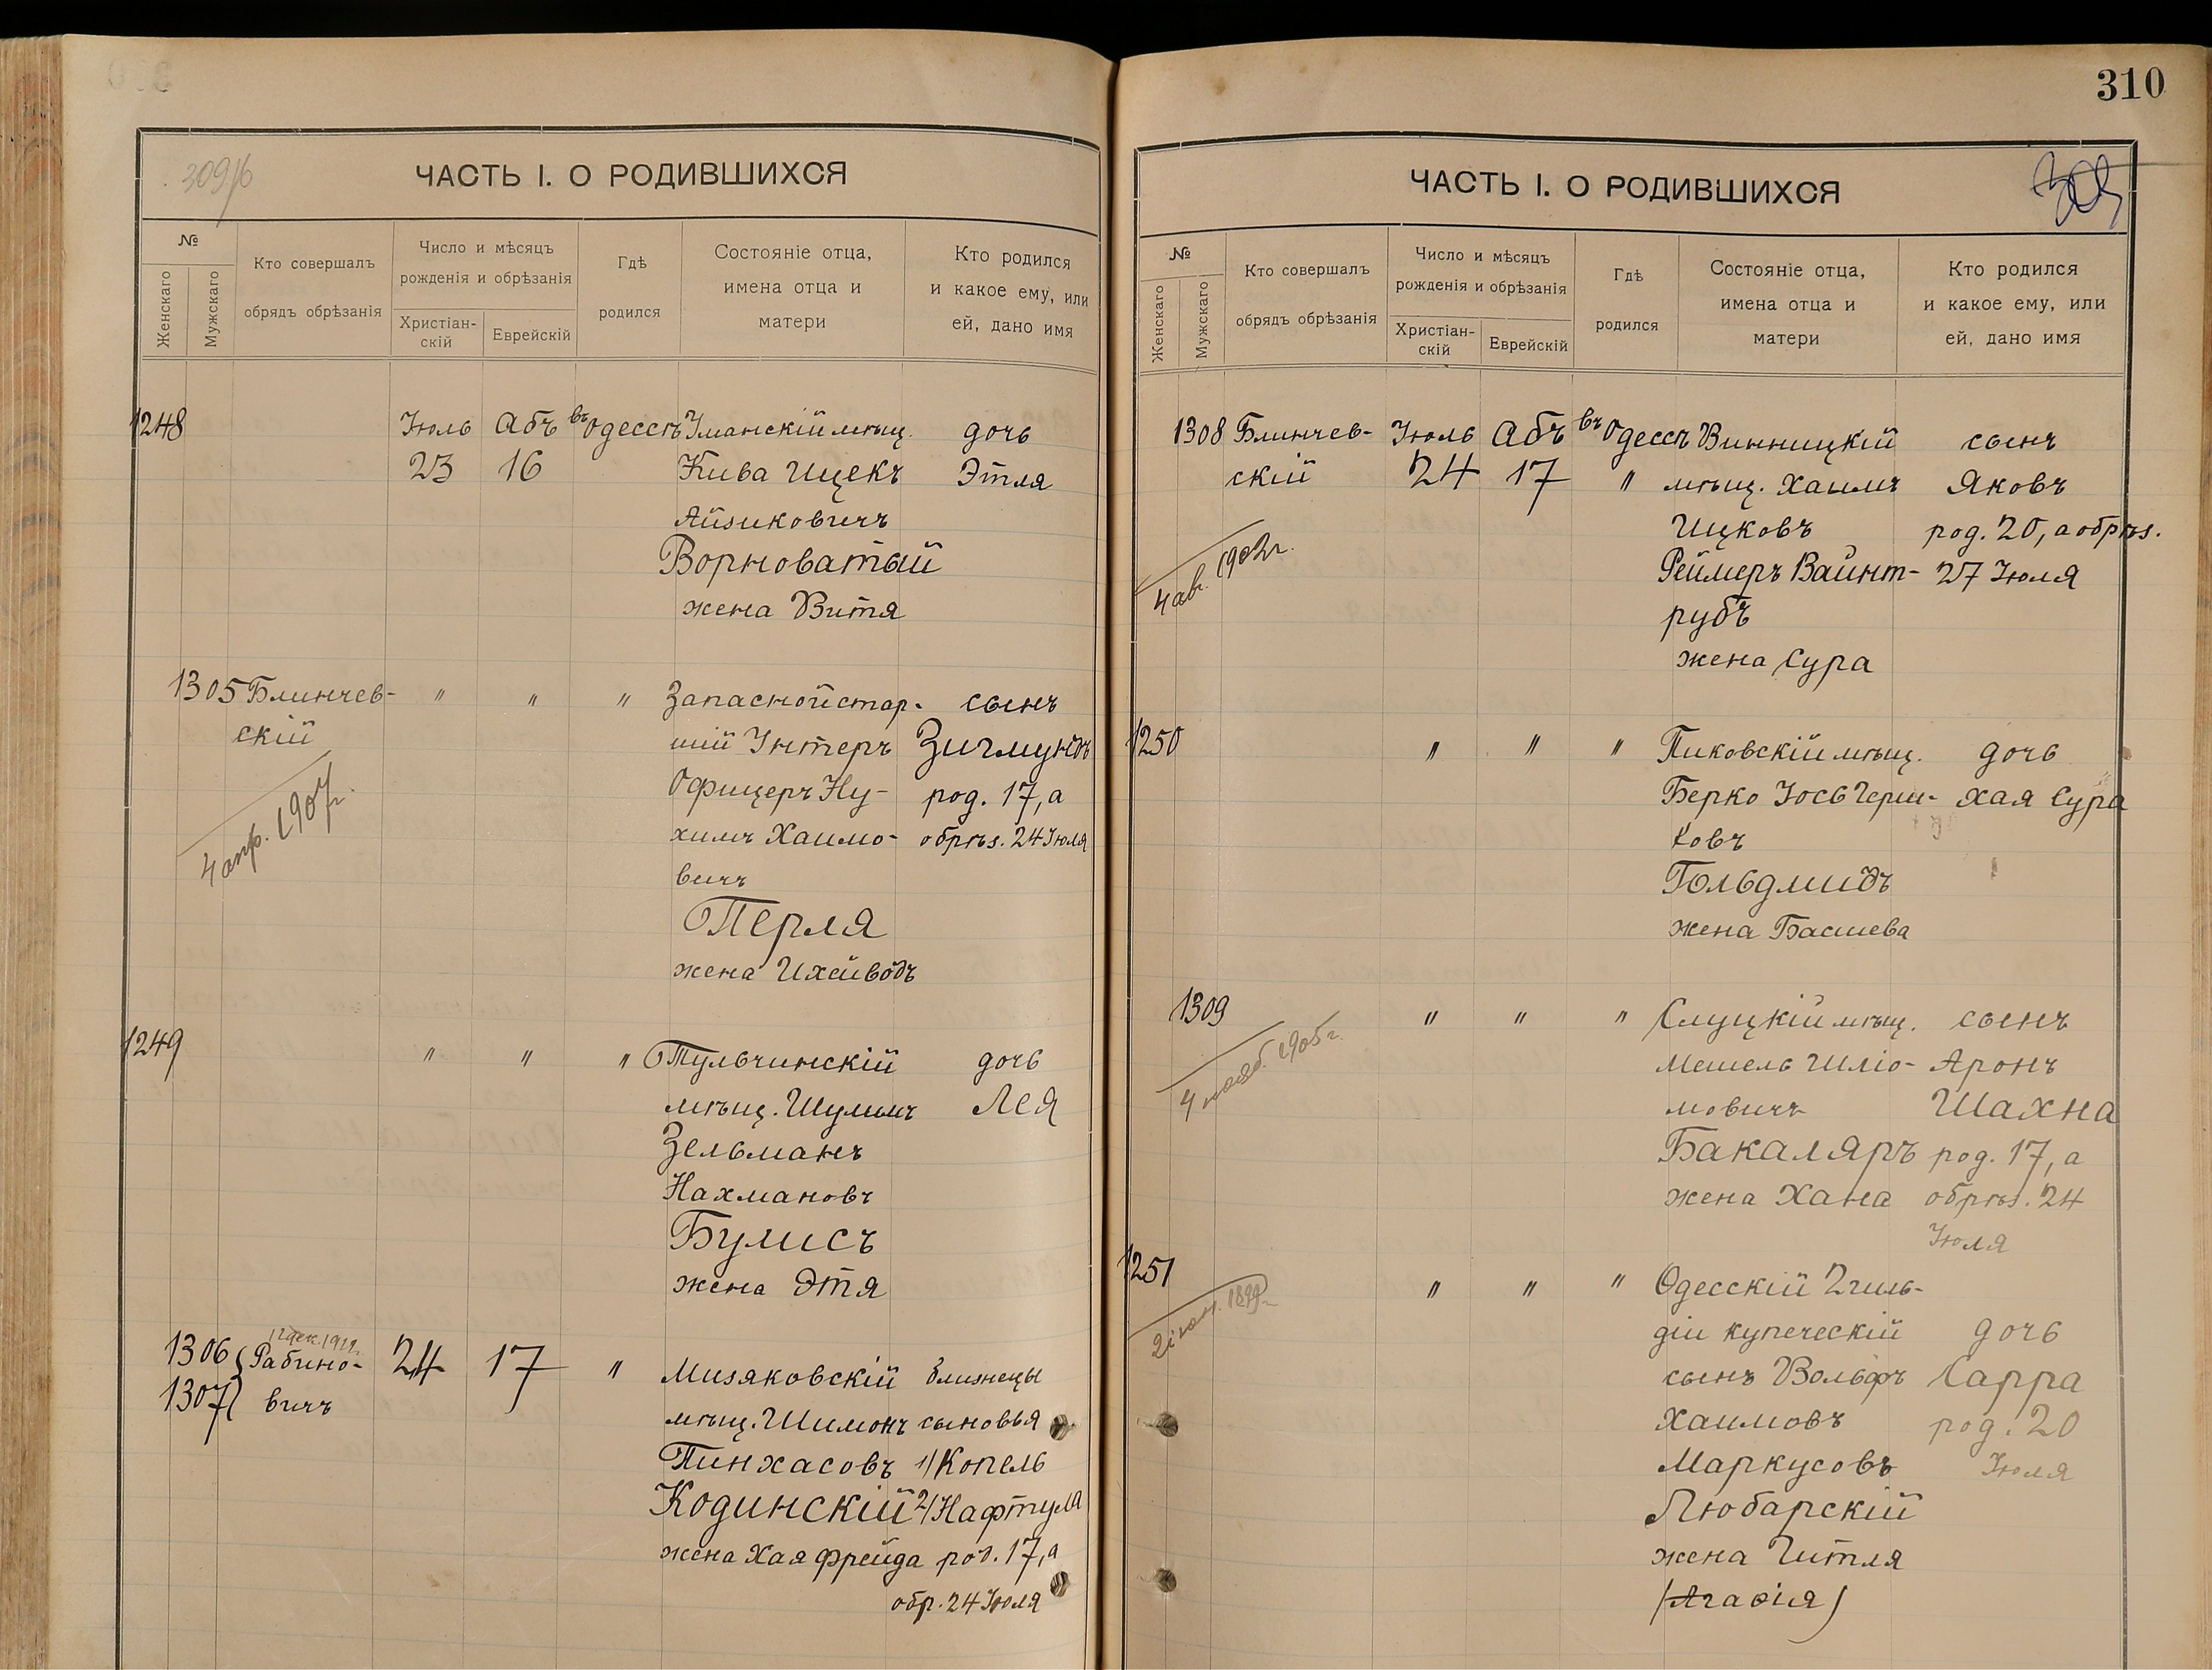 309/б
ЧАСТЬ I. О РОДИВШИХСЯ
№
Женскаго
Мужскаго
Кто совершалъ
обрядъ обрѣзанія
Число и мѣсяцъ
рожденія и обрѣзанія
Христіан-
скій
Еврейскій
Гдѣ
родился
Состояніе отца,
имена отца и
матери
Кто родился
и какое ему, или
ей, дано имя
1248 Іюль Абъ въ Одессѣ Уманскій мѣщ. дочь
23 16 Кива Ицекъ Этля
Айзиковичъ
Ворноватый
жена Витя
1305 Блинчев- " " " Запасной стар- сынъ
скій шій Унтеръ Зигмундъ
Офицеръ Ну- род. 17, а
химъ Хаимо- обрѣз. 24 Іюля
вичъ
4 апр. 1907г.
Перля
жена Ихейводъ
1249 " " " Тульчинскій дочь
мѣщ. Шулимъ Лея
Зельманъ
Нахмановъ
Булисъ
жена Этя
1306 Рабино- 24 17 " Мизяковскій близнецы
1307 вичъ мѣщ. Шимонъ сыновья
Пинхасовъ 1/ Копель
Кодинскій 2/ Нафтула
жена Хая Фрейда род. 17, а
обр. 24 Іюля
310
ЧАСТЬ I. О РОДИВШИХСЯ
№
Женскаго
Мужскаго
Кто совершалъ
обрядъ обрѣзанія
Число и мѣсяцъ
рожденія и обрѣзанія
Христіан-
скій
Еврейскій
Гдѣ
родился
Состояніе отца,
имена отца и
матери
Кто родился
и какое ему, или
ей, дано имя
1308 Блинчев- Іюль Абъ въ Одессѣ Винницкій сынъ
скій 24 17 " мѣщ. Хаимъ Яковъ
Ицковъ род. 20, а обрѣз.
4 ав. 1902г.
Реймеръ Вайнт- 27 Іюля
рубъ
жена Сура
1250 " " " Пиковскій мѣщ. дочь
Берко Іось Герш- Хая Сура
ковъ
Гольдмидъ
жена Басшева
1309 " " " Слуцкій мѣщ. сынъ
Мешель Шліо- Аронъ
мовичъ Шахна
4 нояб. 1905г.
Бакаляръ род. 17, а
жена Хана обрѣз. 24
Іюля
1251 " " " Одесскій 2 гиль-
діи купеческій дочь
сынъ Вольфъ Сарра
Хаимовъ род. 20
Маркусовъ Іюля
Любарскій
жена Гитля
(Агафія)